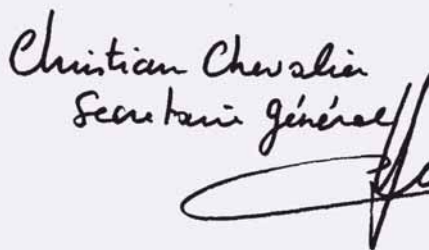 Christian Chevalier
Secretaire Général